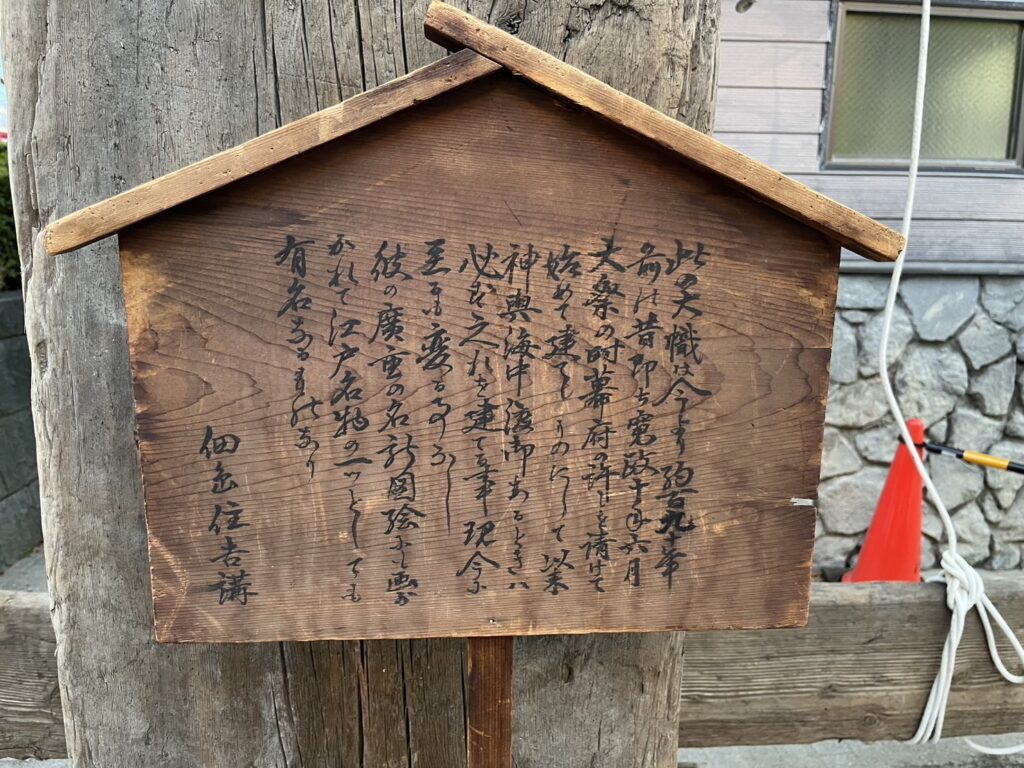 此の大幟は今より約百九十年
前の昔即ち寛政十年六月
大祭の時幕府の許しを請けて
始めて建てしものにして以来
神輿海中渡御あるときハ
必ず之れを建て事現今に
至るも変る事なし
彼の廣重の名所圖絵にも画
かれて江戸名物の一ツとしても
有名なるものなり
佃島住吉講